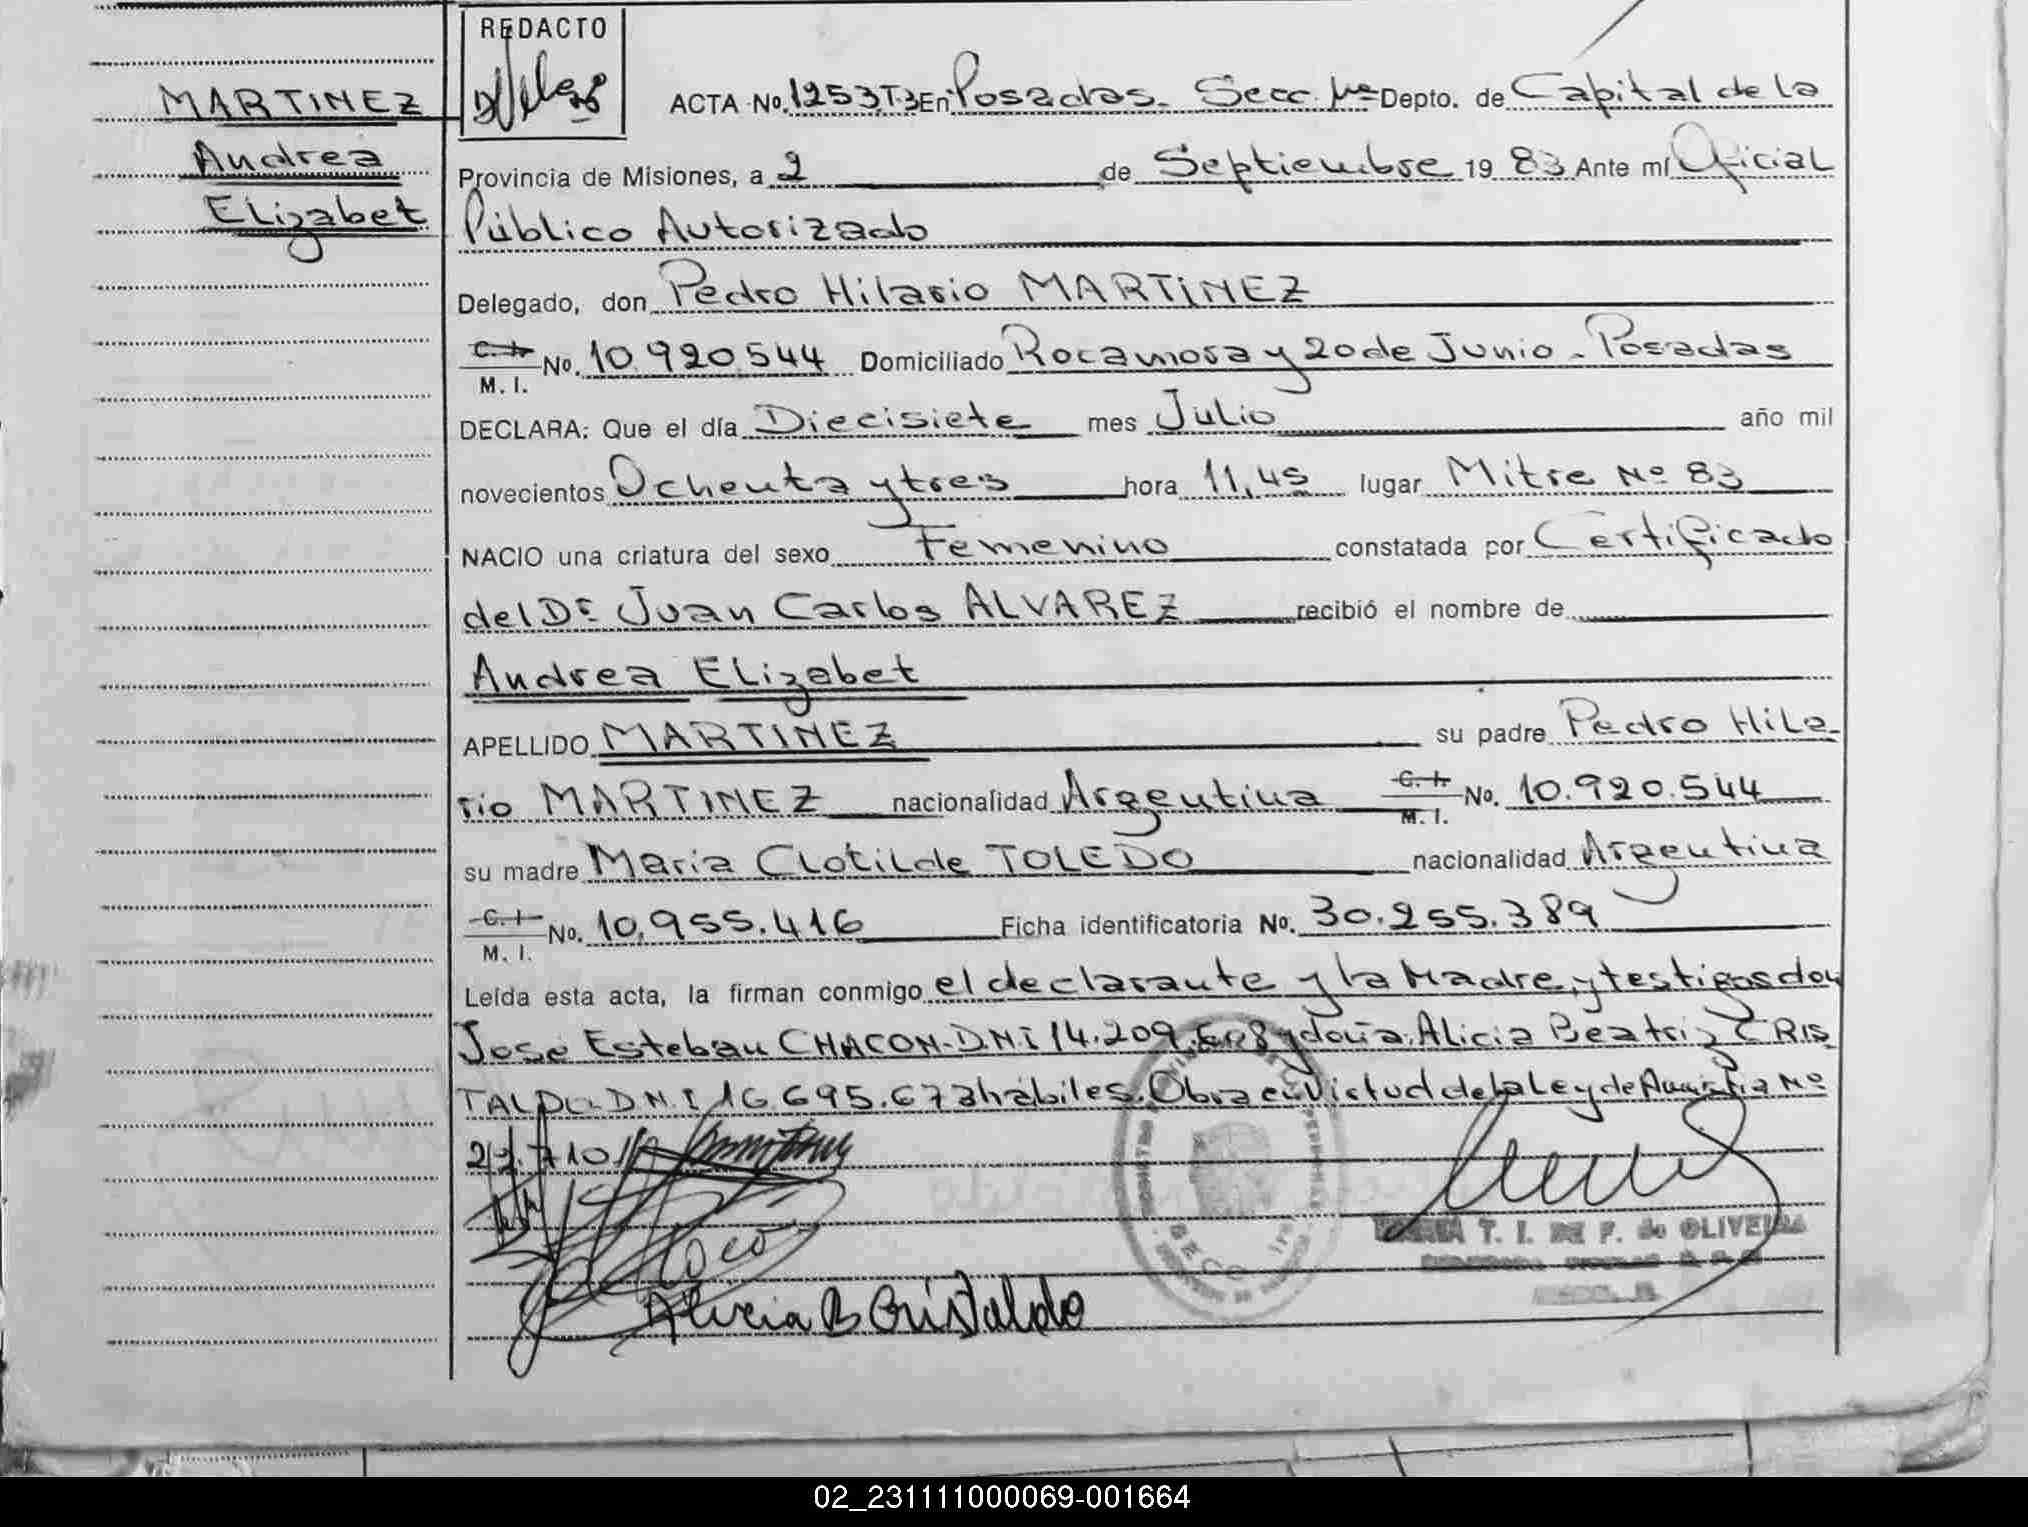 REDACTO
MARTINEZ
Andrea
Elizabet
ACTA No. 1253 T.3 En Posadas. Secc. 1ra Depto. de Capital de la
Provincia de Misiones, a 2 de Septiembre 19 83 Ante mí Oficial
Público Autorizado
Delegado, don Pedro Hilario MARTINEZ
C. I. M. I. No. 10.920.544 Domiciliado Rocamora y 20 de Junio - Posadas
DECLARA: Que el día Diecisiete mes Julio año mil
novecientos Ochenta y tres hora 11,45 lugar Mitre Nº 83
NACIO una criatura del sexo Femenino constatada por Certificado
del Dr. Juan Carlos ALVAREZ recibió el nombre de
Andrea Elizabet
APELLIDO MARTINEZ su padre Pedro Hila-
rio MARTINEZ nacionalidad Argentina C. I. M. I. No. 10.920.544
su madre Maria Clotilde TOLEDO nacionalidad Argentina
C. I. M. I. No. 10.955.416 Ficha identificatoria No. 30.255.389
Leída esta acta, la firman conmigo el declarante y la Madre, y testigos don
Jose Esteban CHACON. DNI 14.209. y doña Alicia Beatriz CRIS
TALDO. DNI 16.695.673 hábiles. Obra en Virtud de la Ley de Amnistia Nº
22.710
Alicia B Cristaldo
T. I. DE F. de OLIVEIRA
02_231111000069-001664